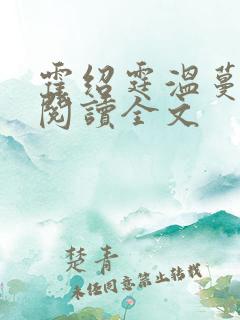 霆绍霆温蔓
閱讀全文
楚青
未经同意禁止转载